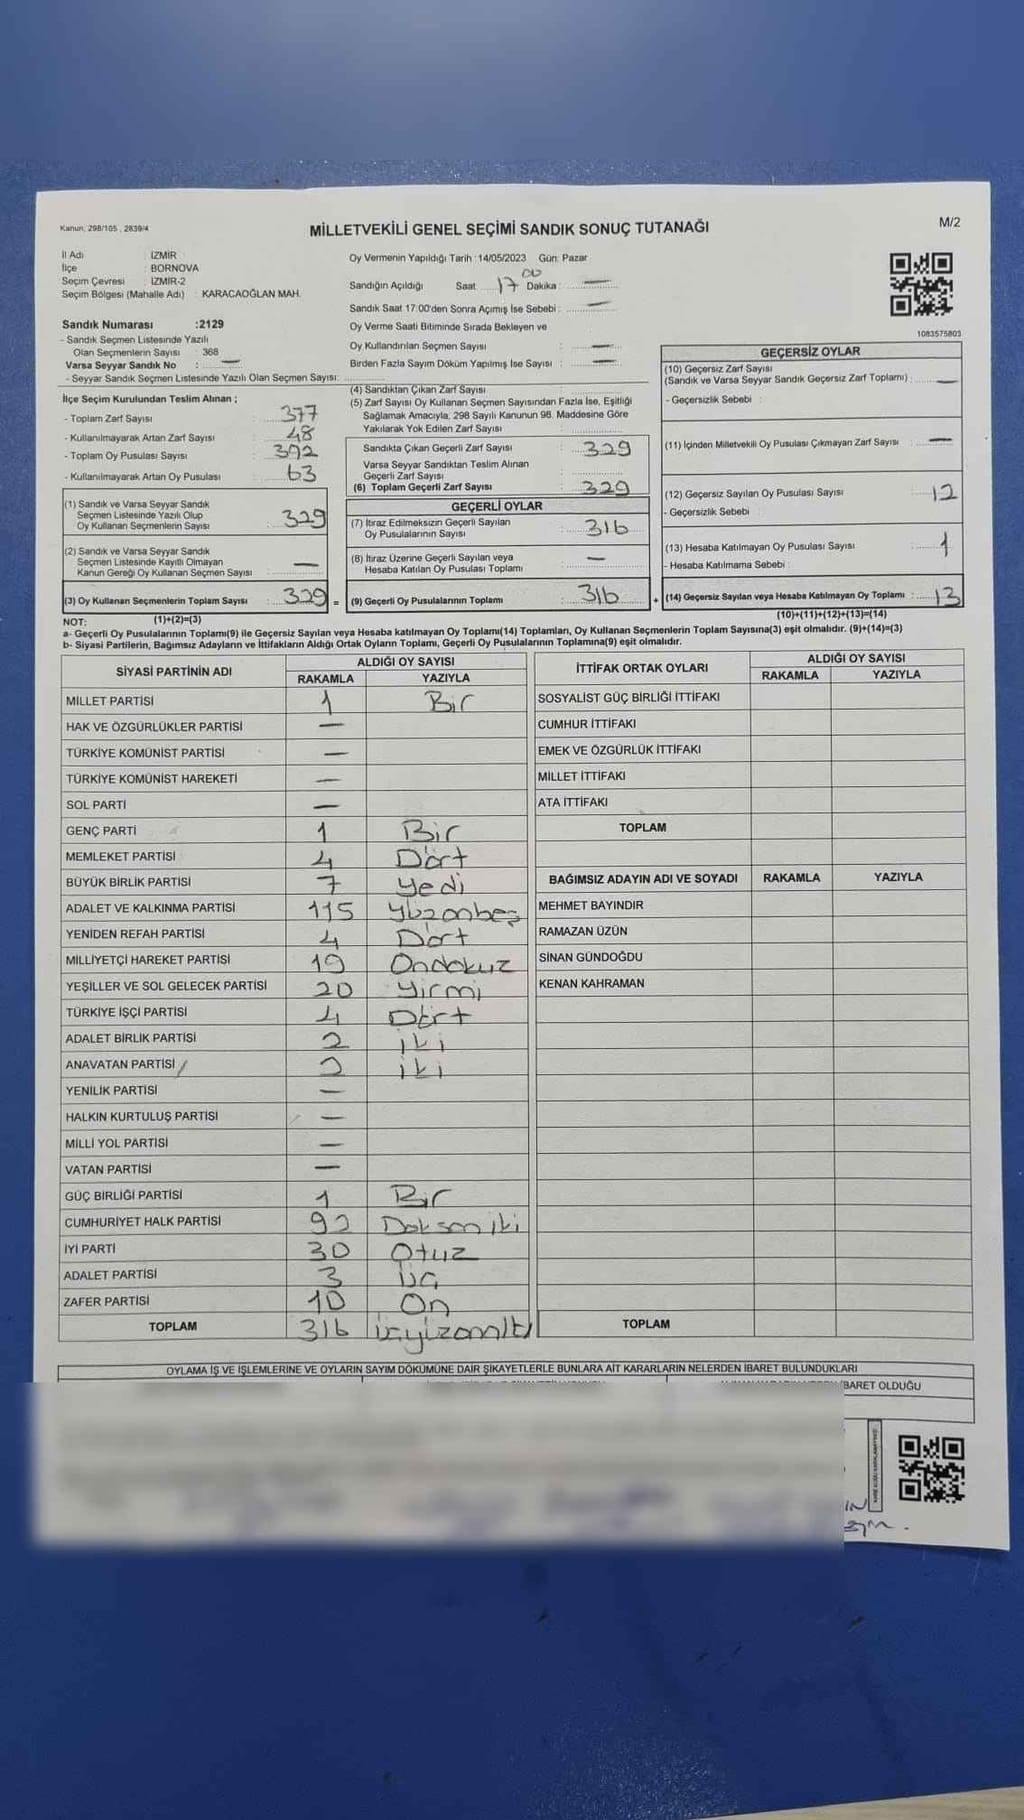 Kanun, 298/105 , 2839/4
MİLLETVEKİLİ GENEL SEÇİMİ SANDIK SONUÇ TUTANAĞI
M/2
İl Adı : İZMİR
İlçe : BORNOVA
Seçim Çevresi : İZMİR-2
Seçim Bölgesi (Mahalle Adı) : KARACAOĞLAN MAH.
Sandık Numarası :2129
- Sandık Seçmen Listesinde Yazılı
Olan Seçmenlerin Sayısı : 368
Varsa Seyyar Sandık No : —
- Seyyar Sandık Seçmen Listesinde Yazılı Olan Seçmen Sayısı:
İlçe Seçim Kurulundan Teslim Alınan ;
- Toplam Zarf Sayısı : 377
- Kullanılmayarak Artan Zarf Sayısı : 48
- Toplam Oy Pusulası Sayısı : 392
- Kullanılmayarak Artan Oy Pusulası : 63
(1) Sandık ve Varsa Seyyar Sandık
Seçmen Listesinde Yazılı Olup
Oy Kullanan Seçmenlerin Sayısı : 329
(2) Sandık ve Varsa Seyyar Sandık
Seçmen Listesinde Kayıtlı Olmayan
Kanun Gereği Oy Kullanan Seçmen Sayısı : —
(3) Oy Kullanan Seçmenlerin Toplam Sayısı : 329 =
(1)+(2)=(3)
Oy Vermenin Yapıldığı Tarih : 14/05/2023 Gün: Pazar
Sandığın Açıldığı Saat 17 00 Dakika : —
Sandık Saat 17:00'den Sonra Açımış İse Sebebi : —
Oy Verme Saati Bitiminde Sırada Bekleyen ve
Oy Kullandırılan Seçmen Sayısı : —
Birden Fazla Sayım Döküm Yapılmış İse Sayısı : —
(4) Sandıktan Çıkan Zarf Sayısı :
(5) Zarf Sayısı Oy Kullanan Seçmen Sayısından Fazla İse, Eşitliği
Sağlamak Amacıyla, 298 Sayılı Kanunun 98. Maddesine Göre
Yakılarak Yok Edilen Zarf Sayısı :
Sandıkta Çıkan Geçerli Zarf Sayısı : 329
Varsa Seyyar Sandıktan Teslim Alınan
Geçerli Zarf Sayısı :
(6) Toplam Geçerli Zarf Sayısı : 329
GEÇERLİ OYLAR
(7) İtiraz Edilmeksizin Geçerli Sayılan
Oy Pusulalarının Sayısı : 316
(8) İtiraz Üzerine Geçerli Sayılan veya
Hesaba Katılan Oy Pusulası Toplamı : —
(9) Geçerli Oy Pusulalarının Toplamı : 316 +
1083575803
GEÇERSİZ OYLAR
(10) Geçersiz Zarf Sayısı
(Sandık ve Varsa Seyyar Sandık Geçersiz Zarf Toplamı) : —
- Geçersizlik Sebebi :
(11) İçinden Milletvekili Oy Pusulası Çıkmayan Zarf Sayısı : —
(12) Geçersiz Sayılan Oy Pusulası Sayısı : 12
- Geçersizlik Sebebi :
(13) Hesaba Katılmayan Oy Pusulası Sayısı : 1
- Hesaba Katılmama Sebebi :
(14) Geçersiz Sayılan veya Hesaba Katılmayan Oy Toplamı : 13
(10)+(11)+(12)+(13)=(14)
NOT:
a- Geçerli Oy Pusulalarının Toplamı(9) ile Geçersiz Sayılan veya Hesaba katılmayan Oy Toplamı(14) Toplamları, Oy Kullanan Seçmenlerin Toplam Sayısına(3) eşit olmalıdır. (9)+(14)=(3)
b- Siyasi Partilerin, Bağımsız Adayların ve İttifakların Aldığı Ortak Oyların Toplamı, Geçerli Oy Pusulalarının Toplamına(9) eşit olmalıdır.
SİYASİ PARTİNİN ADI ALDIĞI OY SAYISI
RAKAMLA YAZIYLA
MİLLET PARTİSİ 1 Bir
HAK VE ÖZGÜRLÜKLER PARTİSİ —
TÜRKİYE KOMÜNİST PARTİSİ —
TÜRKİYE KOMÜNİST HAREKETİ —
SOL PARTİ —
GENÇ PARTİ 1 Bir
MEMLEKET PARTİSİ 4 Dört
BÜYÜK BİRLİK PARTİSİ 7 yedi
ADALET VE KALKINMA PARTİSİ 115 yüzonbeş
YENİDEN REFAH PARTİSİ 4 Dört
MİLLİYETÇİ HAREKET PARTİSİ 19 Ondokuz
YEŞİLLER VE SOL GELECEK PARTİSİ 20 yirmi
TÜRKİYE İŞÇİ PARTİSİ 4 Dört
ADALET BİRLİK PARTİSİ 2 iki
ANAVATAN PARTİSİ 2 iki
YENİLİK PARTİSİ —
HALKIN KURTULUŞ PARTİSİ —
MİLLİ YOL PARTİSİ —
VATAN PARTİSİ —
GÜÇ BİRLİĞİ PARTİSİ 1 Bir
CUMHURİYET HALK PARTİSİ 92 Doksan iki
İYİ PARTİ 30 Otuz
ADALET PARTİSİ 3 üç
ZAFER PARTİSİ 10 On
TOPLAM 316 üçyüzonaltı
İTTİFAK ORTAK OYLARI ALDIĞI OY SAYISI
RAKAMLA YAZIYLA
SOSYALİST GÜÇ BİRLİĞİ İTTİFAKI
CUMHUR İTTİFAKI
EMEK VE ÖZGÜRLÜK İTTİFAKI
MİLLET İTTİFAKI
ATA İTTİFAKI
TOPLAM
BAĞIMSIZ ADAYIN ADI VE SOYADI RAKAMLA YAZIYLA
MEHMET BAYINDIR
RAMAZAN ÜZÜN
SİNAN GÜNDOĞDU
KENAN KAHRAMAN
TOPLAM
OYLAMA İŞ VE İŞLEMLERİNE VE OYLARIN SAYIM DÖKÜMÜNE DAİR ŞİKAYETLERLE BUNLARA AİT KARARLARIN NELERDEN İBARET BULUNDUKLARI
İBARET OLDUĞU